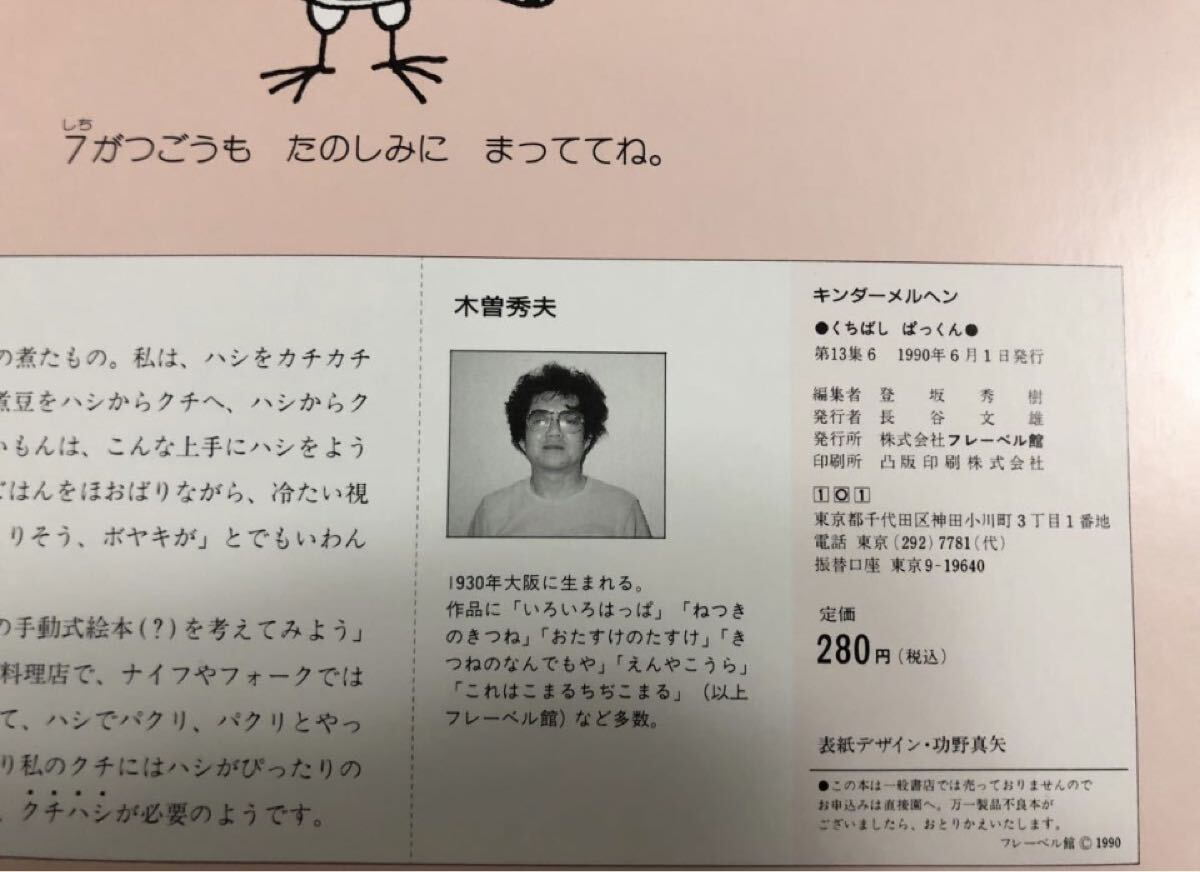 しち
7がつごうも たのしみに まっててね。
の煮たもの。私は、ハシをカチカチ
煮豆をハシからクチへ、ハシからク
いもんは、こんな上手にハシをよう
ごはんをほおばりながら、冷たい視
りそう、ボヤキが」とでもいわん
の手動式絵本(?)を考えてみよう」
料理店で、ナイフやフォークでは
て、ハシでパクリ、パクリとやっ
り私のクチにはハシがぴったりの
、クチハシが必要のようです。
木曽秀夫
1930年大阪に生まれる。
作品に「いろいろはっぱ」「ねつき
のきつね」「おたすけのたすけ」「き
つねのなんでもや」「えんやこうら」
「これはこまるちぢこまる」(以上
フレーベル館)など多数。
キンダーメルヘン
●くちばし ぱっくん●
第13集6 1990年6月1日発行
編集者 登坂秀樹
発行者 長谷文雄
発行所 株式会社フレーベル館
印刷所 凸版印刷株式会社
101
東京都千代田区神田小川町3丁目1番地
電話 東京(292)7781(代)
振替口座 東京9-19640
定価
280円(税込)
表紙デザイン・功野真矢
●この本は一般書店では売っておりませんので
お申込みは直接園へ。万一製品不良本が
ございましたら、おとりかえいたします。
フレーベル館 © 1990